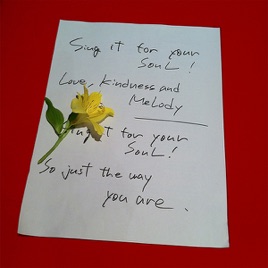 Sing it for your
SouL!
Love, Kindness and
MeLody
it for your
SouL!
So just the way
you are.